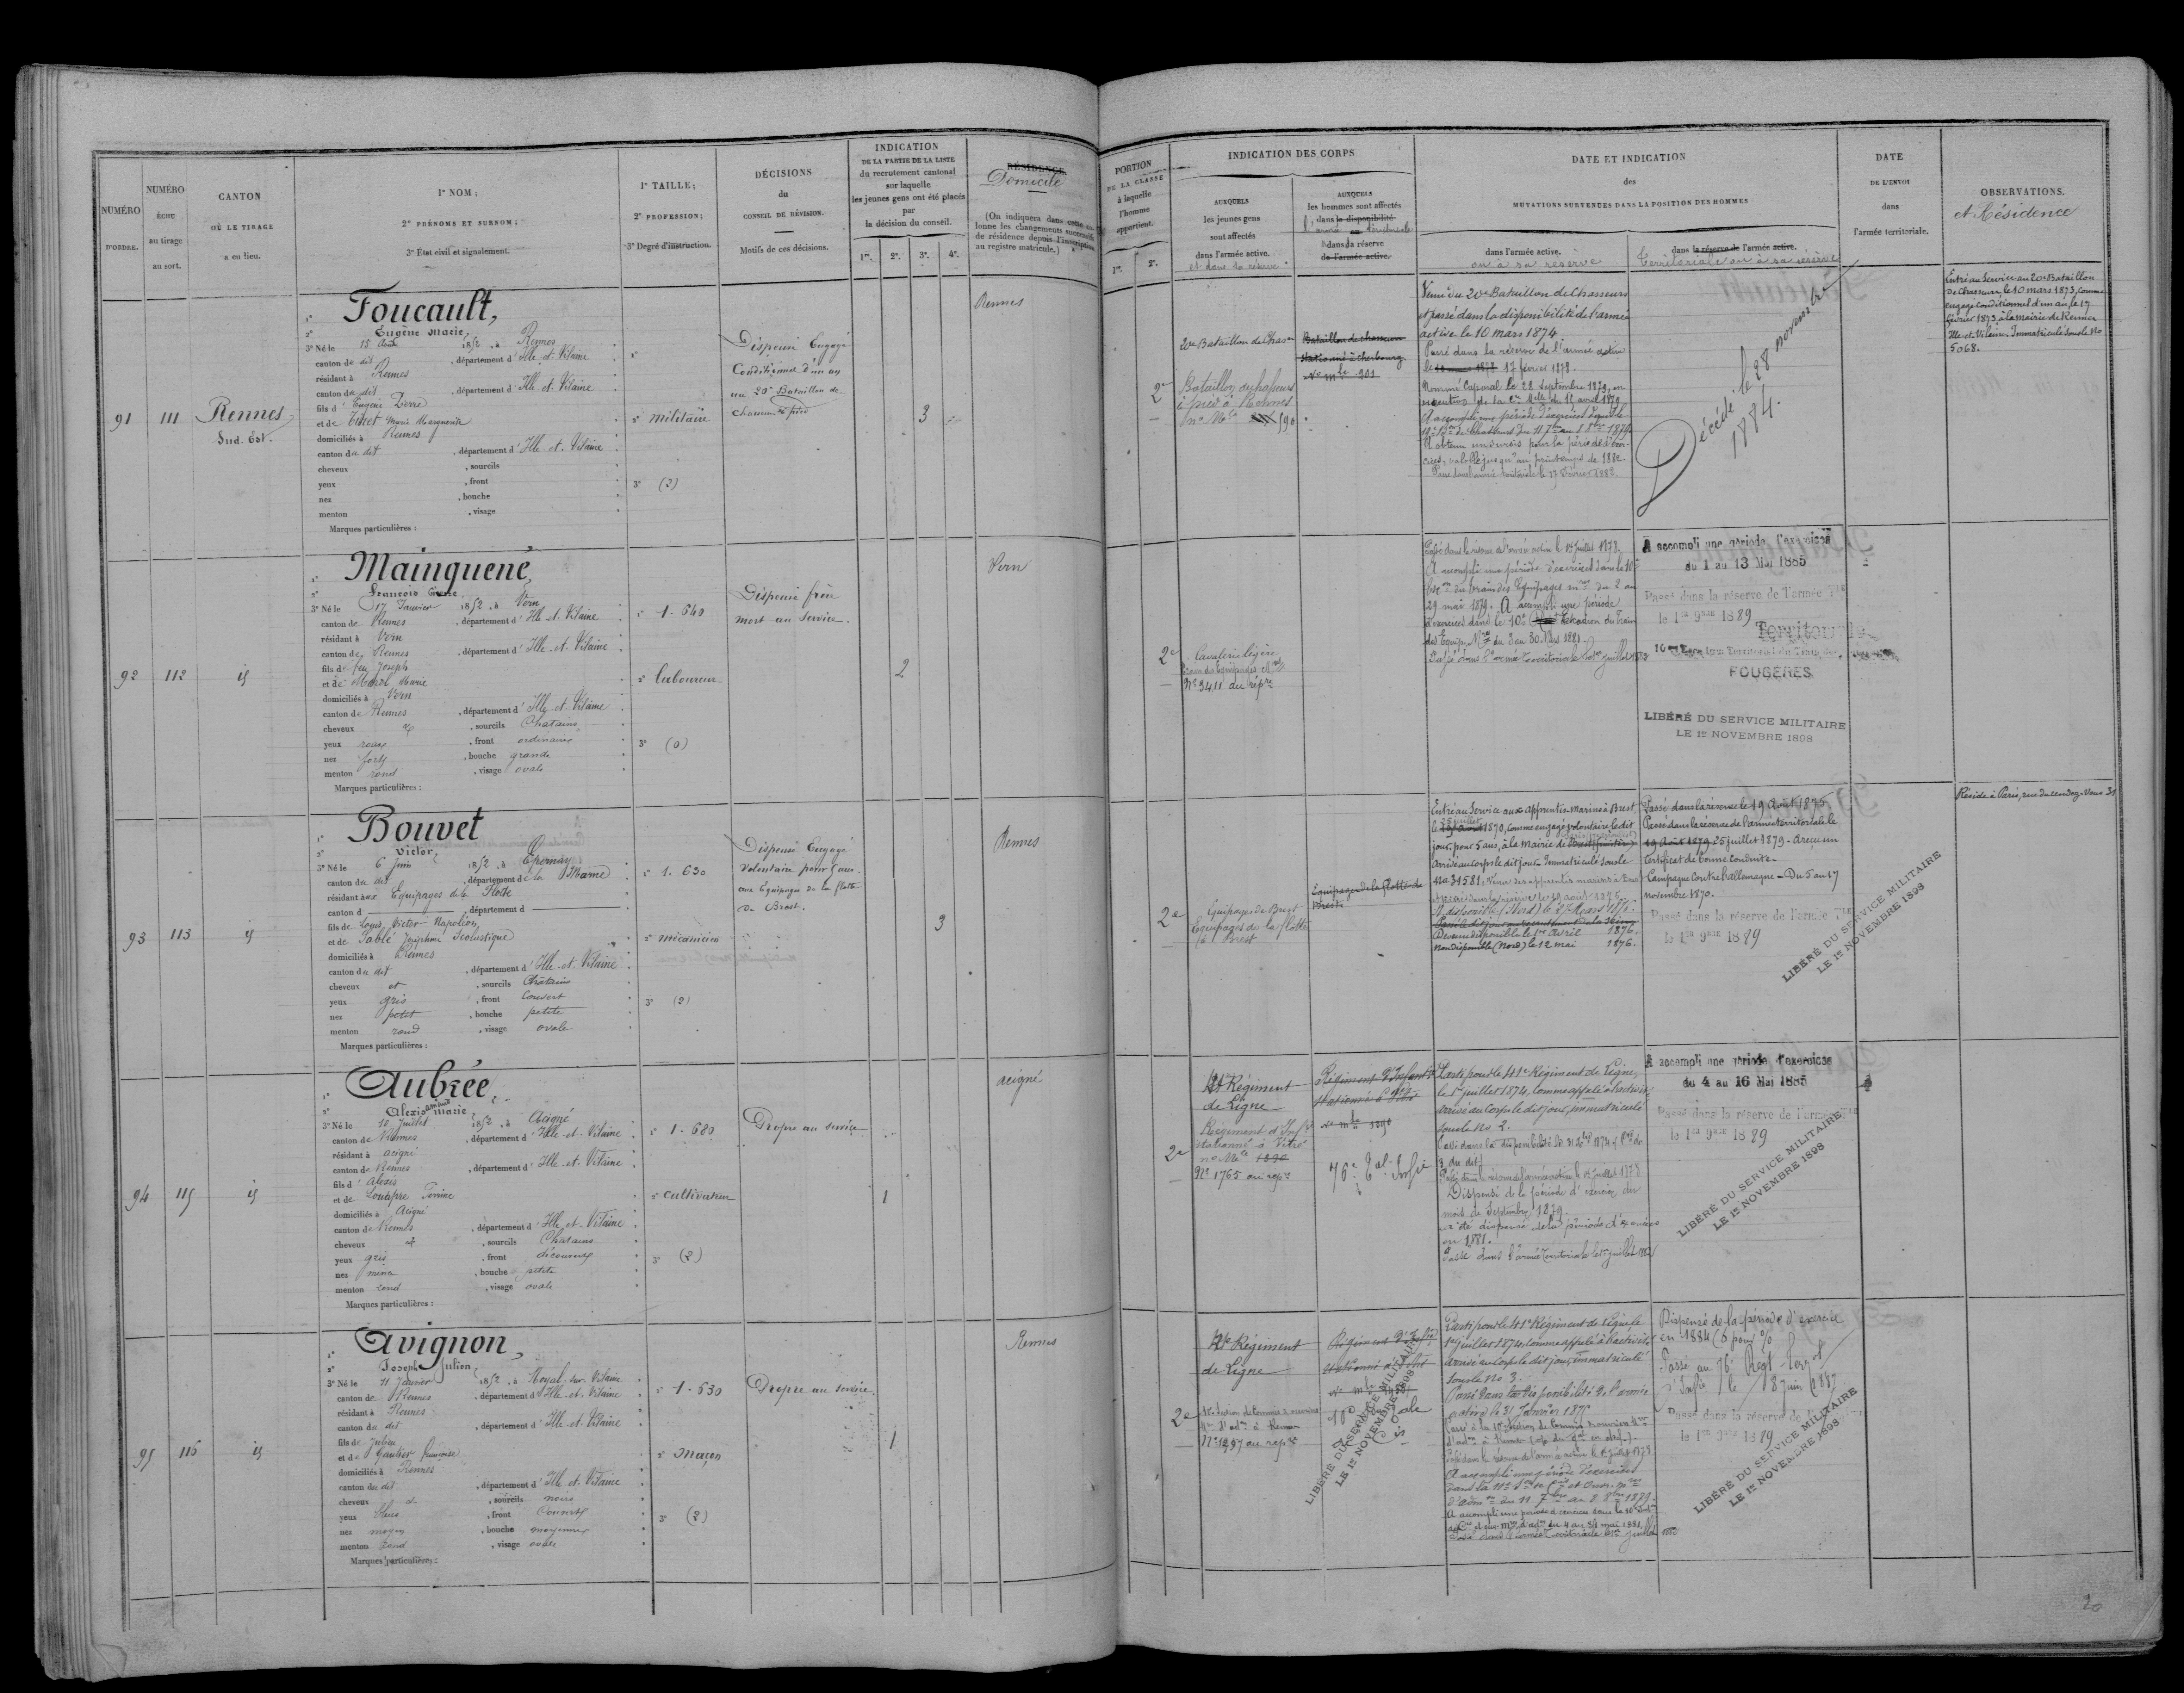 NUMÉRO
D'ORDRE.
NUMÉRO
ÉCHU
au tirage
au sort.
CANTON
OÙ LE TIRAGE
a eu lieu.
1° NOM;
2° PRÉNOMS ET SURNOM;
3° État civil et signalement.
1° TAILLE;
2° PROFESSION;
3° Degré d'instruction.
DÉCISIONS
du
CONSEIL DE RÉVISION.
Motifs de ces décisions.
INDICATION
DE LA PARTIE DE LA LISTE
du recrutement cantonal
sur laquelle
les jeunes gens ont été placés
par
la décision du conseil.
1re. 2e. 3e. 4e.
RÉSIDENCE.
Domicile
(On indiquera dans cette colonne les changements successifs
de résidence depuis l'inscription
au registre matricule.)
PORTION
DE LA CLASSE
à laquelle
l'homme
appartient.
1re. 2e.
INDICATION DES CORPS
AUXQUELS
les jeunes gens
sont affectés
dans l'armée active.
et dans la réserve
AUXQUELS
les hommes sont affectés
dans la disponibilité
l'armée territoriale
dans la réserve
de l'armée active.
DATE ET INDICATION
des
MUTATIONS SURVENUES DANS LA POSITION DES HOMMES
dans l'armée active.
ou à sa réserve
dans la réserve de l'armée active.
Territoriale ou à sa réserve
DATE
DE L'ENVOI
dans
l'armée territoriale.
OBSERVATIONS.
et Résidence
91 111 Rennes
Sud. Est.
1° Foucault,
2° Eugène Marie,
3° Né le 15 Août 1852, à Rennes
canton de dit, département d'Ille-et-Vilaine
résidant à Rennes
canton du dit, département d'Ille-et-Vilaine
fils d'Eugène Pierre
et de Marie Marguerite
domiciliés à Rennes
canton du dit, département d'Ille-et-Vilaine
cheveux , sourcils
yeux , front
nez , bouche
menton , visage
Marques particulières :
1°
2° Militaire
3° (2)
Dispensé Engagé
Conditionnel d'un an
au 20e Bataillon de
chasseurs à pied
3
Rennes
2e
20e Bataillon de Chasrs
Bataillon de chasseurs
à pied à Rennes
no Mle 590
Bataillon de chasseurs
stationné à Cherbourg.
No mle 201
Venu du 20e Bataillon de Chasseurs
et passé dans la disponibilité de l'armée
active le 10 mars 1874
Passé dans la réserve de l'armée active
le 17 février 1878.
Nommé Caporal le 28 Septembre 1879, en
exécution de la Cre Melle du 15 avril 1879
A accompli une période d'exercices dans le
de Chasseurs du 11 7bre au 8 8bre 1879
A obtenu un sursis pour la période d'exercices, valable jusqu'au printemps de 1882.
Passé dans l'armée territoriale le 17 Février 1882.
Décédé le 28 novembre
1884.
Entré au Service au 20e Bataillon
de Chasseurs, le 10 mars 1873, comme
engagé conditionnel d'un an, le 17
février 1873, à la mairie de Rennes
Ille-et-Vilaine. Immatriculé sous le No
5068.
92 112 id
1° Mainguené,
2° François Pierre
3° Né le 17 Janvier 1852, à Vern
canton de Rennes, département d'Ille-et-Vilaine
résidant à Vern
canton de Rennes, département d'Ille-et-Vilaine
fils de feu Joseph
et de Marie
domiciliés à Vern
canton de Rennes, département d'Ille-et-Vilaine
cheveux et, sourcils Chatains
yeux roux, front ordinaire
nez fort, bouche grande
menton rond, visage ovale
Marques particulières :
1° 1.640
2° laboureur
3° (0)
Dispensé frère
mort au service.
2
Vern
2e
Cavalerie légère
Train des Equipages Mres
No 3411 au répre
Passé dans la réserve de l'armée active le 1er Juillet 1878.
A accompli une période d'exercices dans le 10e
Escon du Train des Equipages mres du 2 au
29 mai 1879. A accompli une période
d'exercices dans le 10e Escadron du Train
des Equip. Mres du 3 au 30 Mai 1881.
Passé dans l'armée territoriale le 1er juillet 1883
A accompli une période d'exercices
du 1 au 13 Mai 1885
Passé dans la réserve de l'armée Tle
le 1er 9bre 1889
Territoriale
FOUGÈRES
LIBÉRÉ DU SERVICE MILITAIRE
LE 1er NOVEMBRE 1898
93 113 id
1° Bouvet
2° Victor,
3° Né le 6 Juin 1852, à Epernay
canton du dit, département de la Marne
résidant aux Equipages de la Flotte
canton d , département d
fils de Louis Victor Napoléon
et de Sablé Joséphine Scolastique
domiciliés à Rennes
canton du dit, département d'Ille-et-Vilaine
cheveux et, sourcils Châtains
yeux gris, front Couvert
nez petit, bouche petite
menton rond, visage ovale
Marques particulières :
1° 1.630
2° mécanicien
3° (2)
Dispensé Engagé
Volontaire pour 5 ans.
aux Equipages de la flotte
de Brest.
3
Rennes
2e
Equipages de Brest
Equipages de la flotte
à Brest
Equipages de la flotte de
Brest.
Entré au Service aux apprentis-marins à Brest
le 25 juillet 1870, comme engagé volontaire, ledit
jour, pour 5 ans, à la mairie de Brest (finistère)
Arrivé au corps le dit jour. Immatriculé sous le
No 31581. Venu des apprentis marins à Brest
et passé dans la réserve le 19 août 1875.
Devenu disponible le 1er Avril 1876.
Non disponible (Nord) le 12 mai 1876.
Passé dans la réserve le 19 Août 1875.
Passé dans la réserve de l'armée territoriale le
19 Août 1879. 25 juillet 1879 - A reçu un
Certificat de bonne conduite -
Campagne Contre l'Allemagne - Du 5 au 17
novembre 1870.
Passé dans la réserve de l'armée Tle
le 1er 9bre 1889
LIBÉRÉ DU SERVICE MILITAIRE
LE 1er NOVEMBRE 1898
Réside à Paris, rue du rendez-Vous 31
94 115 id
1° Aubrée,
2° Alexis amand Marie,
3° Né le 10 Juillet 1852, à Acigné
canton de Rennes, département d'Ille-et-Vilaine
résidant à acigné
canton de Rennes, département d'Ille-et-Vilaine
fils d'Alexis
et de Louapre Perrine
domiciliés à Acigné
canton de Rennes, département d'Ille-et-Vilaine
cheveux et, sourcils Châtains
yeux gris, front découvert
nez mince, bouche petite
menton rond, visage ovale
Marques particulières :
1° 1.680
2° Cultivateur
3° (2)
Propre au service
1
acigné
2e
41e Régiment
de Ligne
Régiment d'Infie
stationné à Vitré
no Mle 1890
No 1765 au répre
Régiment d'Infanterie
stationné à Vitré
No mle 1890
76e Tal Infie
Parti pour le 41e Régiment de Ligne,
le 1er juillet 1874, Comme appelé à l'activité,
Arrivé au Corps le dit jour, immatriculé
sous le No 2.
Passé dans la réserve de l'armée active le 1er Juillet 1878
Dispensé de la période d'exercices du
mois de Septembre 1879.
a été dispensé de la période d'exercices
en 1881.
Passé dans l'armée territoriale le 1er juillet 1883
A accompli une période d'exercices
du 4 au 16 Mai 1885
Passé dans la réserve de l'armée Tle
le 1er 9bre 1889
LIBÉRÉ DU SERVICE MILITAIRE
LE 1er NOVEMBRE 1898
95 116 id
1° Avignon,
2° Joseph Julien,
3° Né le 11 Janvier 1852, à Noyal-sur-Vilaine
canton de Rennes, département d'Ille-et-Vilaine
résidant à Rennes
canton du dit, département d'Ille-et-Vilaine
fils de Julien
et de Gautier Françoise
domiciliés à Rennes
canton du dit, département d'Ille-et-Vilaine
cheveux et, sourcils noirs
yeux bleus, front Couvert
nez moyen, bouche moyenne
menton rond, visage ovale
Marques particulières :
1° 1.630
2° Maçon
3° (2)
Propre au service.
1
Rennes
2e
41e Régiment
de Ligne
No 1297 au répre
Régiment d'Infie
Parti pour le 41e Régiment de Ligne le
1er juillet 1874, comme appelé à l'activité,
arrivé au Corps le dit jour, immatriculé
sous le No 3.
Passé dans la disponibilité de l'armée
active le 31 Janvier 1875
Passé dans la réserve de l'armée active le 1er Juillet 1878
A accompli une période d'exercices
d'admon du 11 7bre au 8 8bre 1879.
A accompli une période d'exercices dans la 10e Sectn
Passé dans l'armée Territoriale le 1er juillet 1883
Dispensé de la période d'exercice
en 1884 (6 pour %)
Passé au 76e Régt Terral
d'Infie le 18 juin 1887
Passé dans la réserve de l'armée Tle
le 1er 9bre 1889
LIBÉRÉ DU SERVICE MILITAIRE
LE 1er NOVEMBRE 1898
LIBÉRÉ DU SERVICE MILITAIRE
LE 1er NOVEMBRE 1898
20